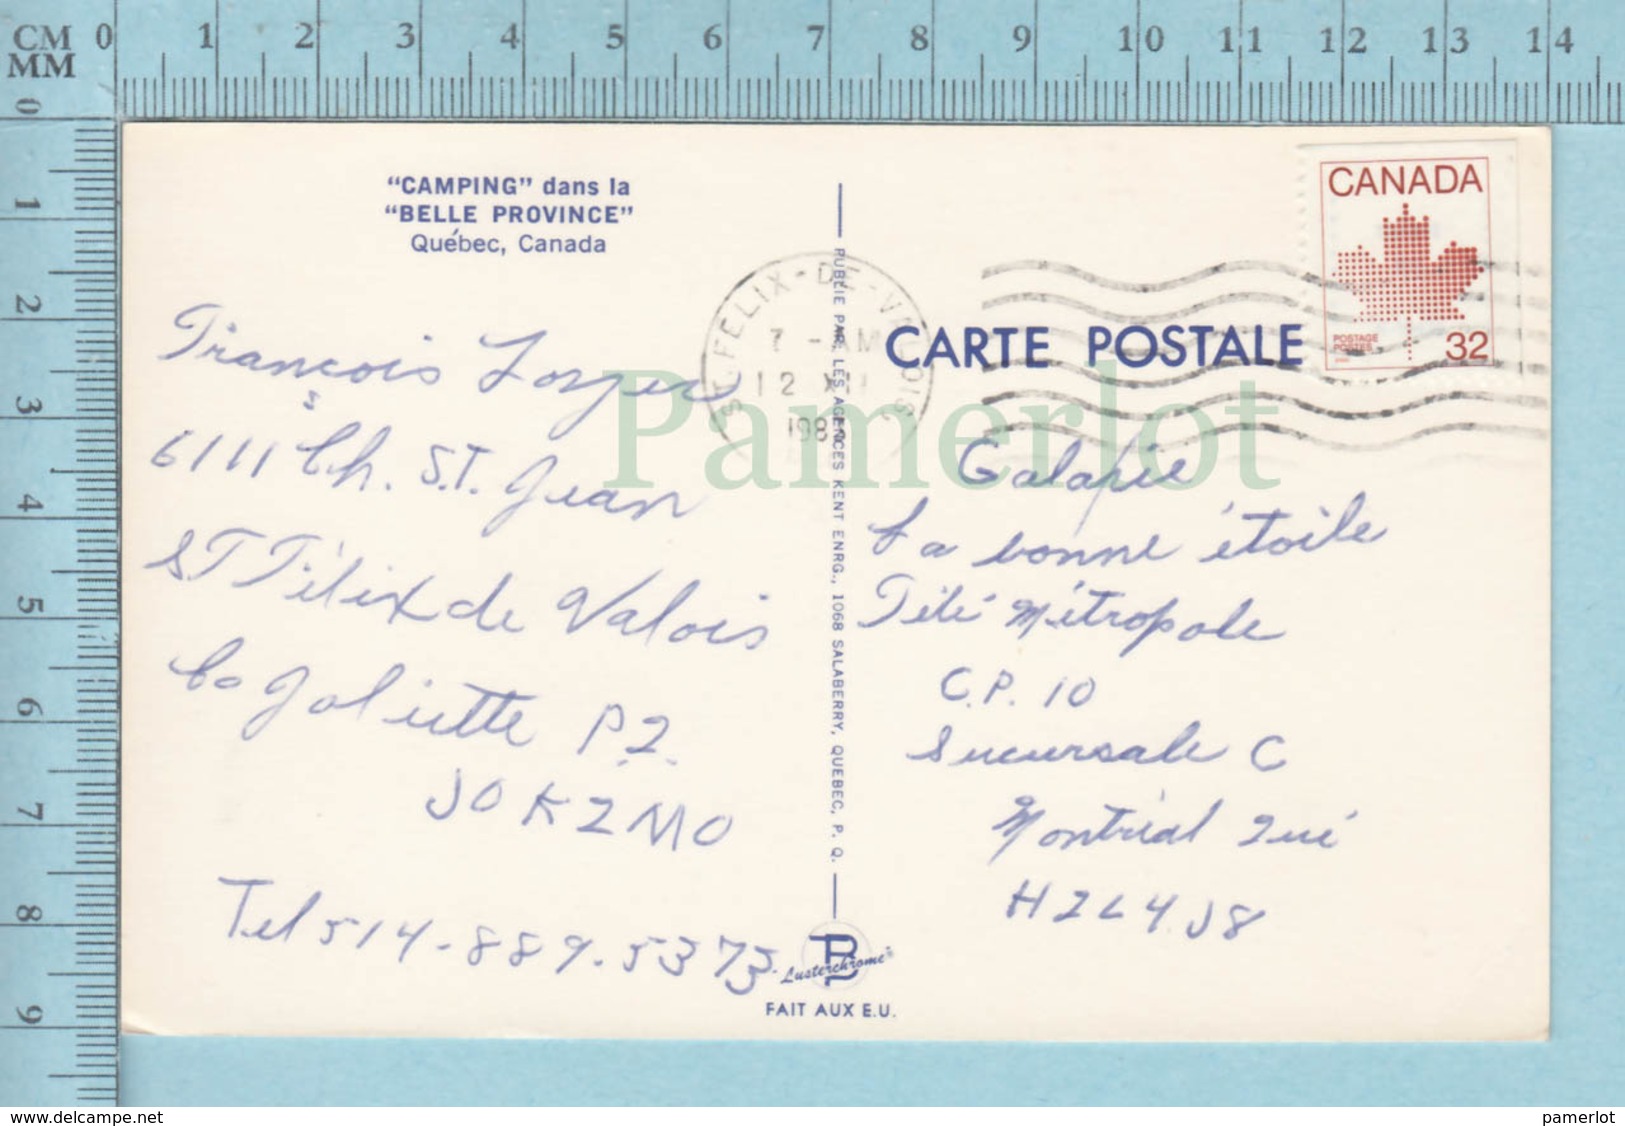 CM 0 1 2 3 4 5 6 7 8 9 10 11 12 13 14
MM
0 1 2 3 4 5 6 7 8 9
"CAMPING" dans la
"BELLE PROVINCE"
Québec, Canada
François
6111 Ch. S.T. Jean
ST Félix de Valois
Co Joliette P.2.
JOK2MO
Tel 514-889-5373
PUBLIE PAR LES AGENCES KENT ENRG., 1068 SALABERRY, QUEBEC, P. Q.
Lusterchrome
FAIT AUX E.U.
ST-FELIX-DE-VALOIS
7 - AM
12 XII
198
CARTE POSTALE
CANADA
POSTAGE
POSTES
32
Galaxie
La bonne étoile
Télé Métropole
C.P. 10
Sucursale C
Montréal Qué
H2L4J8
Pamerlot
www.delcampe.net
pamerlot